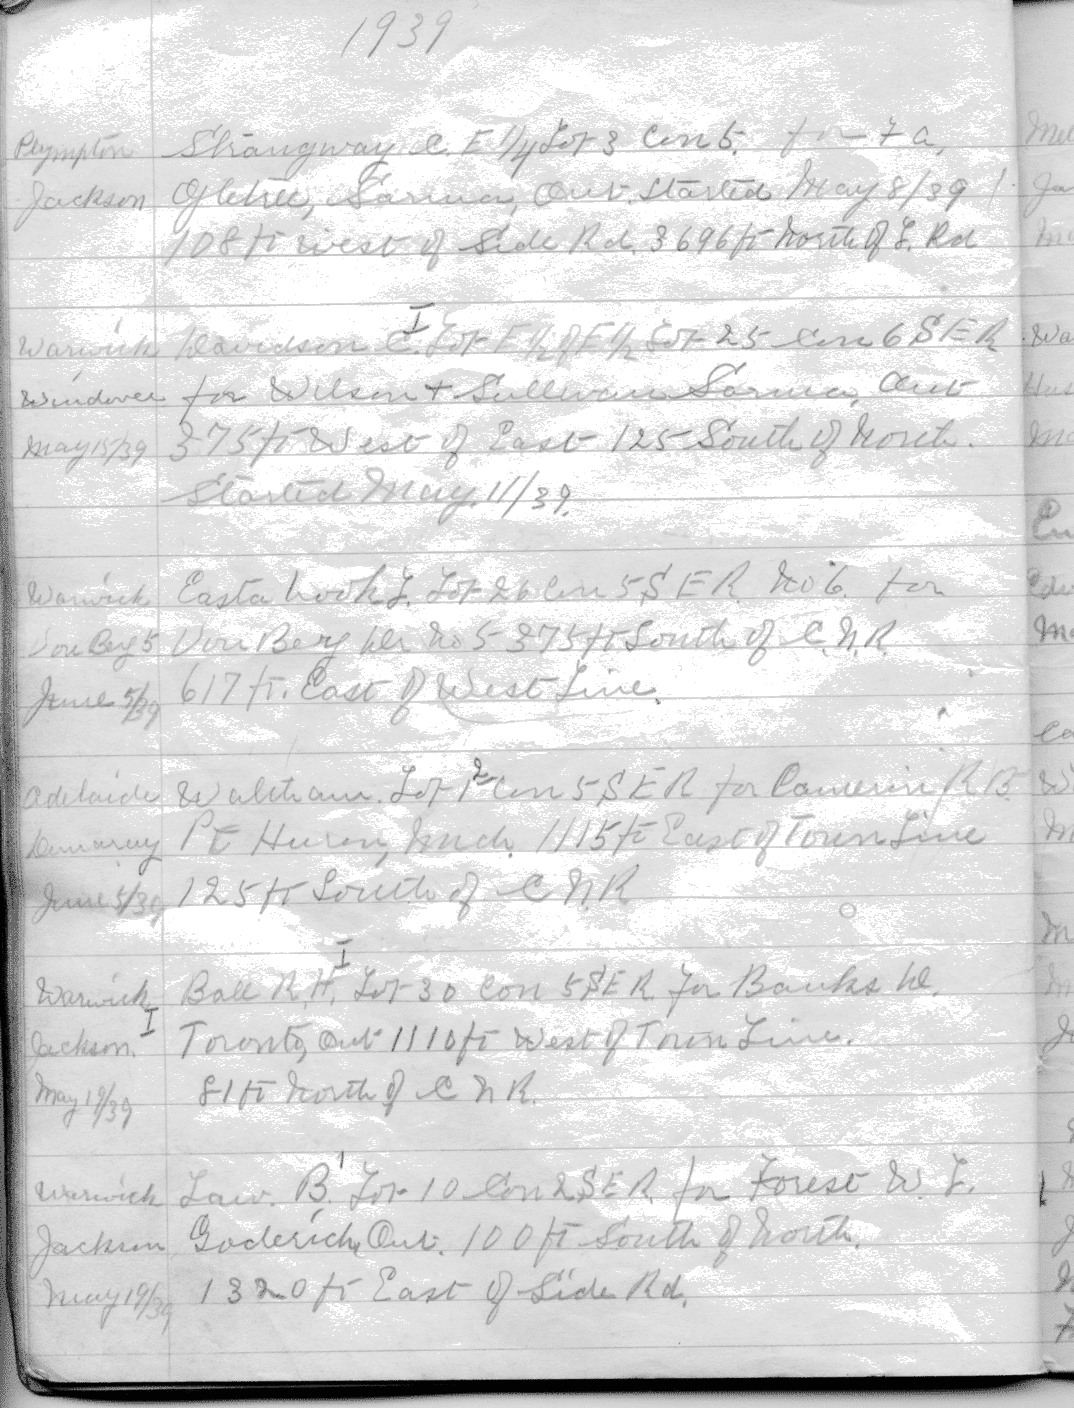 1939
Plympton Strangway C. E 1/4 Lot 3 Con 5. for 7 a,
Jackson Sarnia, Ont. Started May 8/39
108 ft west of Side Rd. 3696 ft North of L. Rd
Warwick Davidson C. I Lot E 1/2 of E 1/2 Lot 25 Con 6 S E R
Windover for Wilson + Sullivan Sarnia, Ont
May 15/39 375 ft West of East 125 South of North.
Started May 11/39.
Warwick Lot 26 Con 5 S E R. No 6. for
Von Berg 5 Von Berg No 5 375 ft South of C.N.R.
June 5/39 617 ft. East of West Line.
Adelaide Waltham. Lot 2 Con 5 S E R for Cameron R B.
Pt Huron, Mich. 1115 ft East of Town Line
June 5/39 125 ft South of C N R
Warwick Ball R. H. I Lot 30 Con 5 S E R. for Banks
Jackson. I Toronto, Ont 1110 ft West of Town Line.
May 19/39 81 ft North of C N R.
Warwick Law. B. 1 Lot 10 Con 2 S E R. for Forest W. L.
Jackson Goderich, Ont. 100 ft South of North.
May 19/39 1320 ft East of Side Rd.